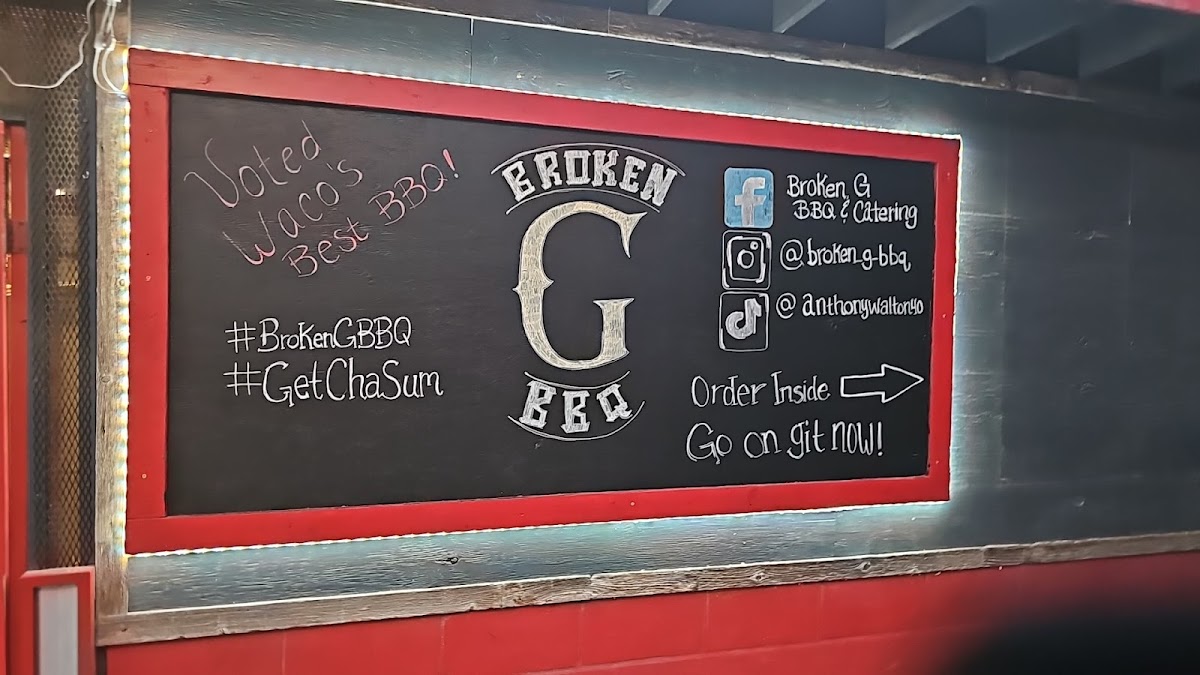 Voted
Waco's
Best BBQ!
#BrokenGBBQ
#GetChaSum
BROKEN
G
BBQ
f
Broken G
BBQ & Catering
@broken_g_bbq
@anthonywalton40
Order Inside
Go on git now!